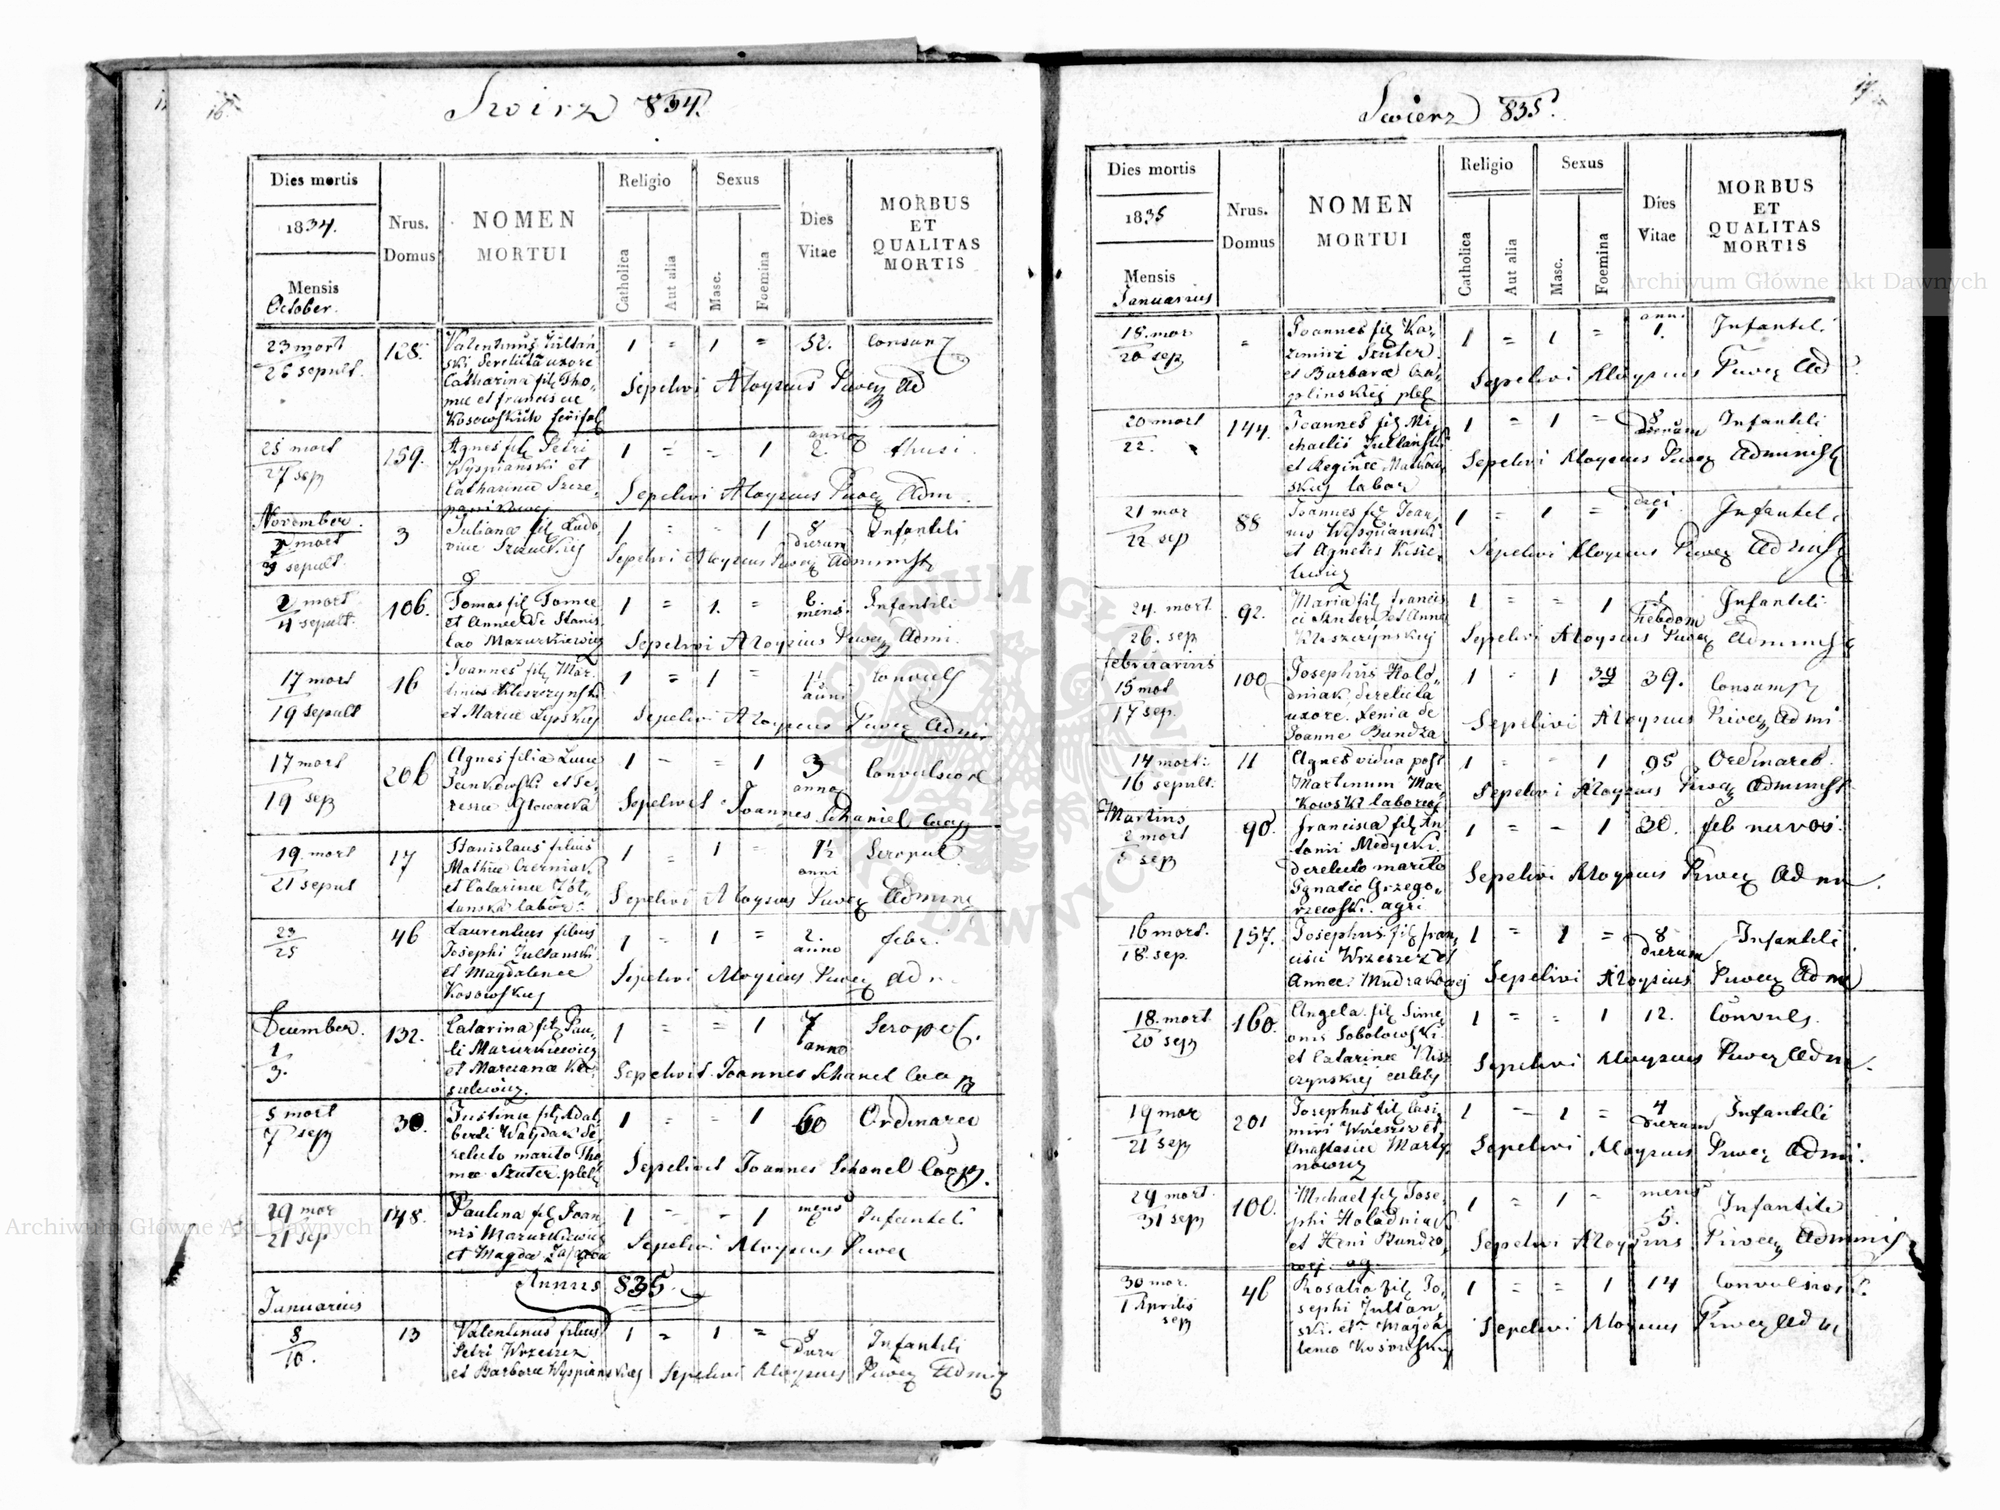 16.
Swirz 834.
Dies mortis
1834.
Mensis
October.
Nrus.
Domus
NOMEN
MORTUI
Religio
Catholica
Aut alia
Sexus
Masc.
Foemina
Dies
Vitae
MORBUS
ET
QUALITAS
MORTIS
23 mort
26 sepult.
128.
Valentinus Jultan,
ski derelicta uxore
Catharina fil Tho,
mæ et Francisciæ
Kosowskich
1 = 1 = 52. Consum
Sepelivi Aloysius Ad
25 mort
27 sep
159.
Agnes fil Petri
Wyspianski et
Catharinæ Szcze,
1 = - 1 2. thusi.
Sepelivi Aloysius Adm.
November.
2 mort
3 sepult.
3
Juliana fil Ludo
1 - - 1 8 dierum Infantili
Sepelivi Aloysius Administ
2 mort
4 sepult.
106.
Tomas fil Tomæ
et Annæ de Stanis
lao Mazurkiewicz
1 = 1. = 6 mens. Infantili
Sepelivi Aloysius Admi.
17 mort
19 sepult
16
Joannes fil Mar
tinus Kleszczynski
et Mariæ Lypskiej
1 = 1 = 1½ anni Convuls
Sepelivi Aloysius Admin
17 mort
19 sep
206
Agnes filia Lucæ
Jankowski et Te,
resiæ Glowacka
1 - - 1 3 annor Convulsion
Sepelivit Joannes Schaniel Coop
19. mort
21 sepul
17
Stanislaus filius
Mathiæ Czerniak
et Catarinæ Zol,
tanska labor.
1 - 1 - 1½ anni Scroful
Sepelivi Aloysius Admini
23
25
46
Laurentius filius
Josephi Jultanski
et Magdalenæ
Kosowskiej
1 = 1 = 2. anno febr.
Sepelivi Aloysius Adm.
December.
1
3.
132.
Catarina fil Pau,
li Mazurkiewicz
et Marcianæ Ki,
sielewicz.
1 = - 1 7 anno
Sepelivit Joannes Schanel Coop
5 mort
7 sep
30.
Justina fil Adal,
berti Walydak de
relicto marito Tho
mæ Szuter. pleb
1 - - 1 60 Ordinareo
Sepelivit Joannes Schanel Coop.
19 mor
21 sep
148.
Paulina fil Joan,
nis Mazurkiewicz
et Magda
1 - - 1 mens 6 Infantili
Sepelivi Aloysius
Annus 835.
Januarius
8
10.
13
Valentinus filius
Petri Wrzeszcz
et Barbaræ Wyspianskiej
1 = 1 = 8 dieru Infantili
Sepelivi Aloysius Admi
17
Swierz 835.
Dies mortis
1835
Mensis
Januarius
Nrus.
Domus
NOMEN
MORTUI
Religio
Catholica
Aut alia
Sexus
Masc.
Foemina
Dies
Vitae
MORBUS
ET
QUALITAS
MORTIS
18. mor
20 sep
=
Joannes fil Ka,
zimiri Szuter
et Barbaræ Cza,
plinskiej pleb
1 = 1 = anni 1. Infantili
Sepelivi Aloysius Ad
20 mort
22.
144.
Joannes fil Mi
chaelis Jultanski
et Reginæ
skiej labor
1 = 1 = 8 dierum Infantili
Sepelivi Aloysius Administ
21 mor
22 sep
88
Joannes fil Joan,
nis Wyspianski
et Agnetis Kisie,
lewicz
1 = 1 = 1 Infantili
Sepelivi Aloysius Administ
24. mort
26. sep
92.
Maria fil Francis
ci Szuter et Annæ
Kleszczynskiej
1 = = 1 1 hebdom Infantili
Sepelivi Aloysius Administ
februarius
15 mort
17 sep.
100
Josephus Holo,
dniak derelicta
uxore. Xenia de
Joanne Bundza
1 = 1 39 39. Consump
Sepelivi Aloysius Admi.
14 mort:
16 sepult.
11
Agnes vidua post
Martinum Mar,
kowski laborios
1 - - 1 95 Ordinareo
Sepelivi Aloysius Administ.
Martius
2 mort
sep
90.
Francisca fil An
tonii
derelicto marito
Ignatio Grzego,
rzewski. agri
1 = - 1 30. feb nervos.
Sepelivi Aloysius Adm.
16 mort.
18. sep.
157.
Josephus fil Fran,
cisci Wrzeszcz et
Annæ Mudrakowej
1 = 1 = 8 dierum Infantili
Sepelivi Aloysius Adm
18 mort
20 sep
160.
Angela fil Sime,
onis Sobolowski
et Catarinæ Klesz
czynskiej
1 = = 1 12. Convuls.
Sepelivi Aloysius Adm.
19 mor
21 sep
201
Josephus fil Casi,
miri Wrzeszcz et
Anastasiæ Marty,
nowicz
1 - 1 = 4 dierum Infantili
Sepelivi Aloysius Admi.
29 mort.
31 sep
100.
Michael fil Jose,
phi Holodniak
et Xeni Bundzo
wej. ag.
1 = 1 = mens 5. Infantili
Sepelivi Aloysius Adminis
30 mor.
1 Aprilis
sep
46
Rosalia fil Jo,
sephi Jultan,
ski et Magda
lena Kosowskiej
1 = = 1 14 Convulsion
Sepelivi Aloysius Adm
Archiwum Główne Akt Dawnych
Archiwum Główne Akt Dawnych
ARCHIWUM GŁÓWNE AKT DAWNYCH